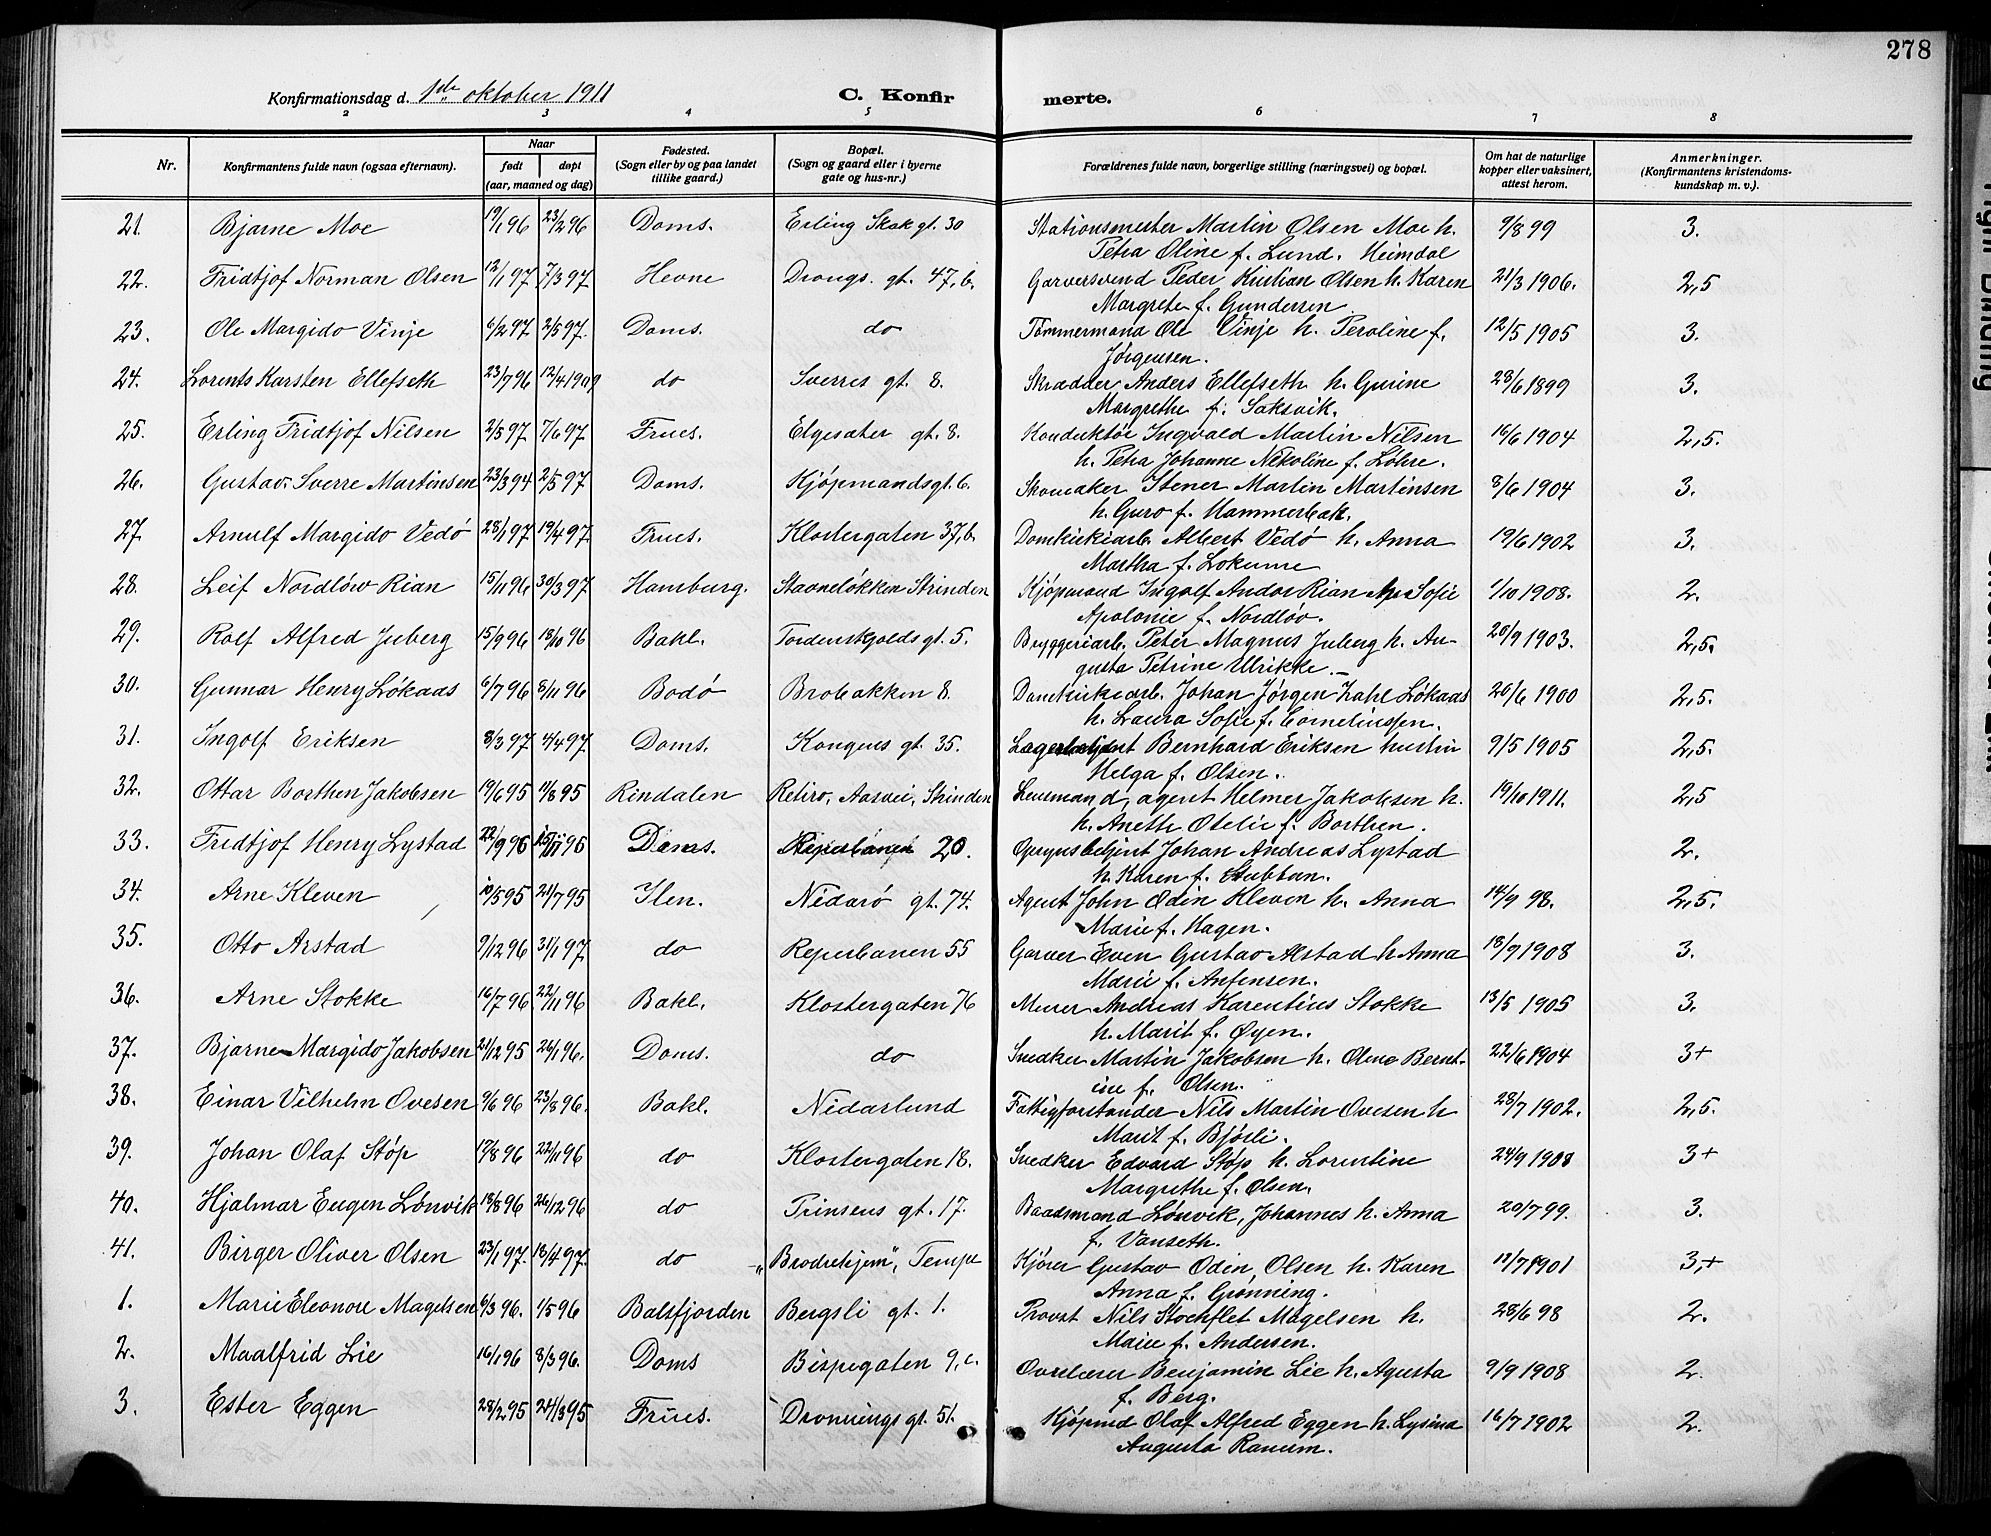 278
Konfirmationsdag d. 1ste oktober 1911 C. Konfirmerte.
2 3 4 5 6 7 8
Nr. Konfirmantens fulde navn (ogsaa efternavn). Naar født døpt (aar, maaned og dag) Fødested. (Sogn eller by og paa landet tillike gaard.) Bopæl. (Sogn og gaard eller i byerne gate og hus-nr.) Forældrenes fulde navn, borgerlige stilling (næringsvei) og bopæl. Om hat de naturlige kopper eller vaksinert, attest herom. Anmerkninger. (Konfirmantens kristendoms-kundskap m. v.)
21. Bjarne Moe 19/1 96 23/2 96 Doms. Erling Skak gt. 30 Stationsmester Martin Olsen Moe h. 9/8 99 3.
Petra Oline f. Lund. Heimdal
22. Fridtjof Norman Olsen 12/1 97 7/3 97 Hevne Drongs. gt. 47,b. Garversvend Peder Kristian Olsen h. Karen 21/3 1906. 2,5
Margrete f. Gundersen
23. Ole Margido Vinje 6/2 97 2/5 97. Doms. do Tømmermand Ole Vinje h. Peroline f. 12/5 1905 3.
Jørgensen.
24. Lorents Karsten Ellefseth 23/7 96 12/4 1909 do Sverres gt. 8. Skrædder Anders Ellefseth h. Gurine 28/6 1899 3.
Margrethe f. Saksvik.
25. Erling Fridtjof Nilsen 2/5 97. 7/6 97. Frues. Elgesæter gt. 8. Konduktør Ingvald Martin Nilsen 16/6 1904 2,5.
h. Petra Johanne Nikoline f. Løhre.
26. Gustav Sverre Martinsen 23/3 94 2/5 97 Doms. Kjøpmandsgt. 6. Skomaker Stener Martin Martinsen 8/6 1904 3.
h. Guro f. Hammerbak.
27. Arnulf Margido Vedø 28/1 97 19/4 97. Frues. Klostergaten 37,b. Domkirkearb. Albert Vedø h. Anna 19/6 1902 3.
Martha f. Lokume
28. Leif Nordløw Rian 15/11 96 30/3 97. Hamburg. Stavneløkken Strinden Kjøpmand Ingolf Andor Rian h. Sofie 1/10 1908. 2.
Apolonie f. Nordløv.
29. Rolf Alfred Juberg 15/9 96 18/10 96 Bakl. Tordenskjolds gt. 5. Bryggeriarb. Peter Magnus Juberg h. Au- 20/9 1903. 2,5.
gusta Petrine Ulrikke.
30. Gunnar Henry Løkaas 6/7 96 8/11 96 Bodø Brobakken 8. Domkirkearb. Johan Jørgen Zahl Løkaas 20/6 1900 2,5.
h. Laura Sofie f. Corneliussen.
31. Ingolf Eriksen 8/3 97 4/4 97. Doms. Kongens gt. 35. Lagerbetjent Bernhard Eriksen hustru 9/5 1905 2,5.
Helga f. Olsen.
32. Ottar Borthen Jakobsen 19/6 95 11/8 95 Rindalen Retiro, Aasvei, Strinden Lensmand, agent Helmer Jakobsen h. 19/10 1911. 2,5
h. Anette Otelie f. Borthen.
33. Fridtjof Henry Lystad 22/9 96 15/11 96 Doms. Reperbanen 20. Opsynsbetjent Johan Andreas Lystad 2.
h. Karen f. Stubban.
34. Arne Kleven 10/5 95 21/7 95 Ilen. Nidarø gt. 74. Agent John Odin Kleven h. Anna 14/9 98. 2,5.
Marie f. Hagen.
35. Otto Arstad 9/12 96 31/1 97. do Reperbanen 55 Garver Even Gustav Alstad h Anna 18/9 1908 3.
Marie f. Anfensen.
36. Arne Stokke 16/7 96 22/11 96 Bakl. Klostergaten 76 Murer Andreas Karentius Stokke 13/5 1905 3.
h. Marit f. Øyen.
37. Bjarne Margido Jakobsen 21/12 95 26/1 96. Doms. do Snedker Martin Jakobsen h. Olene Bernt- 22/6 1904 3+
ine f. Olsen.
38. Einar Vilhelm Ovesen 9/6 96 23/8 96. Bakl. Nidarlund Fattigforstander Nils Martin Ovesen h 28/7 1902. 2,5.
Marit f. Bjørli.
39. Johan Olaf Støp 17/8 96 22/11 96 do Klostergaten 18. Snedker Edvard Støp h. Lorentine 24/9 1908 3+
Margrethe f. Olsen.
40. Hjalmar Eugen Lønvik 18/8 96 26/12 96 do Prinsens gt. 17. Baadsmand Lønvik, Johannes h. Anna 20/7 99. 3.
f. Vanseth.
41. Birger Oliver Olsen 23/1 97. 18/4 97. do „Brodrehjem", Tempe Kjører Gustav Odin Olsen h. Karen 17/7 1901 3,+
Anna f. Grønning.
1. Marie Eleonore Magelsen 6/3 96. 1/5 96 Balsfjorden Bergsli gt. 1. Provst Nils Stochflet Magelsen h. 28/6 98 2.
Marie f. Andersen.
2. Maalfrid Lie 16/1 96 8/3 96. Doms Bispegaten 9,c. Overlærer Benjamin Lie h. Agusta 9/9 1908 2.
f. Berg.
3. Ester Eggen 28/2 95 24/3 95 Frues. Dronnings gt. 51. Kjøpmd Olaf Alfred Eggen h. Lysina 16/7 1902 2.
Augusta Ranum.